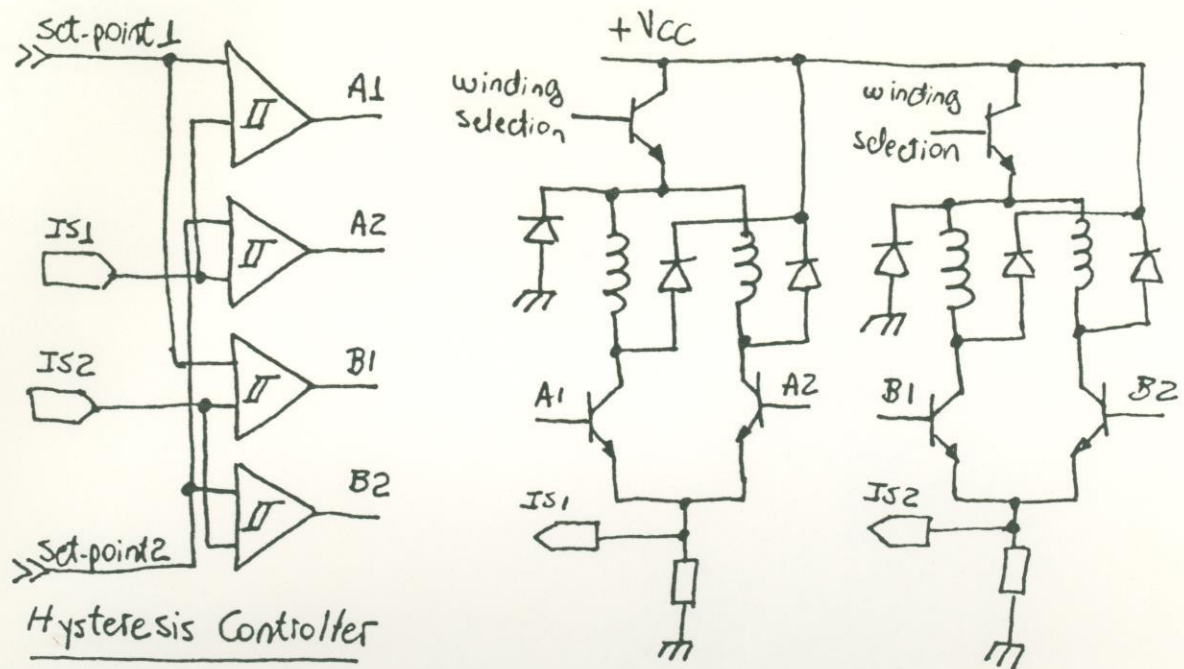 Set-point1
A1
A2
IS1
IS2
B1
B2
Set-point2
Hysteresis Controller
+Vcc
winding
selection
winding
selection
A1
A2
B1
B2
IS1
IS2